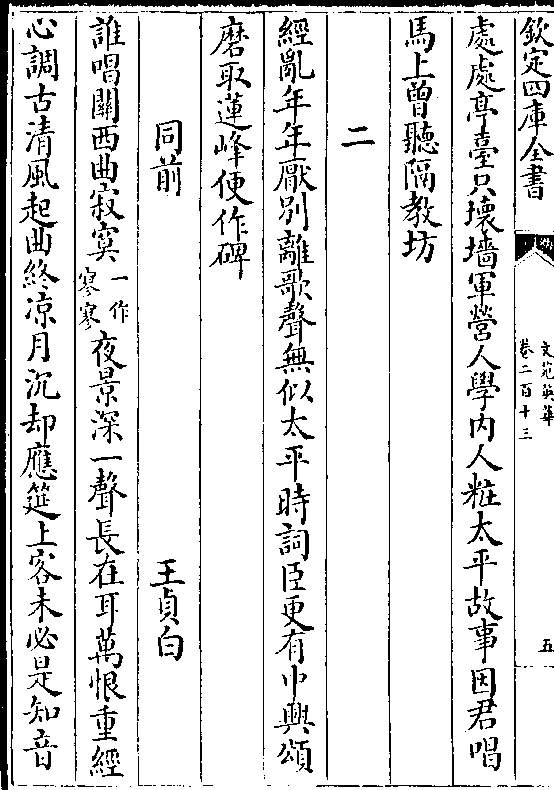 欽定四庫全書
文苑英華
卷二百十三
五
處處亭臺只壞墻軍營人學内人粧太平故事因君唱
馬上曾聽隔教坊
二
經亂年年厭别離歌聲無似太平時詞臣更有中興頌
磨取蓮峰便作碑
同前
王貞白
誰唱關西曲寂寞一作寒寥夜景深一聲長在耳萬恨重經
心調古清風起曲終凉月沉却應筵上客未必是知音